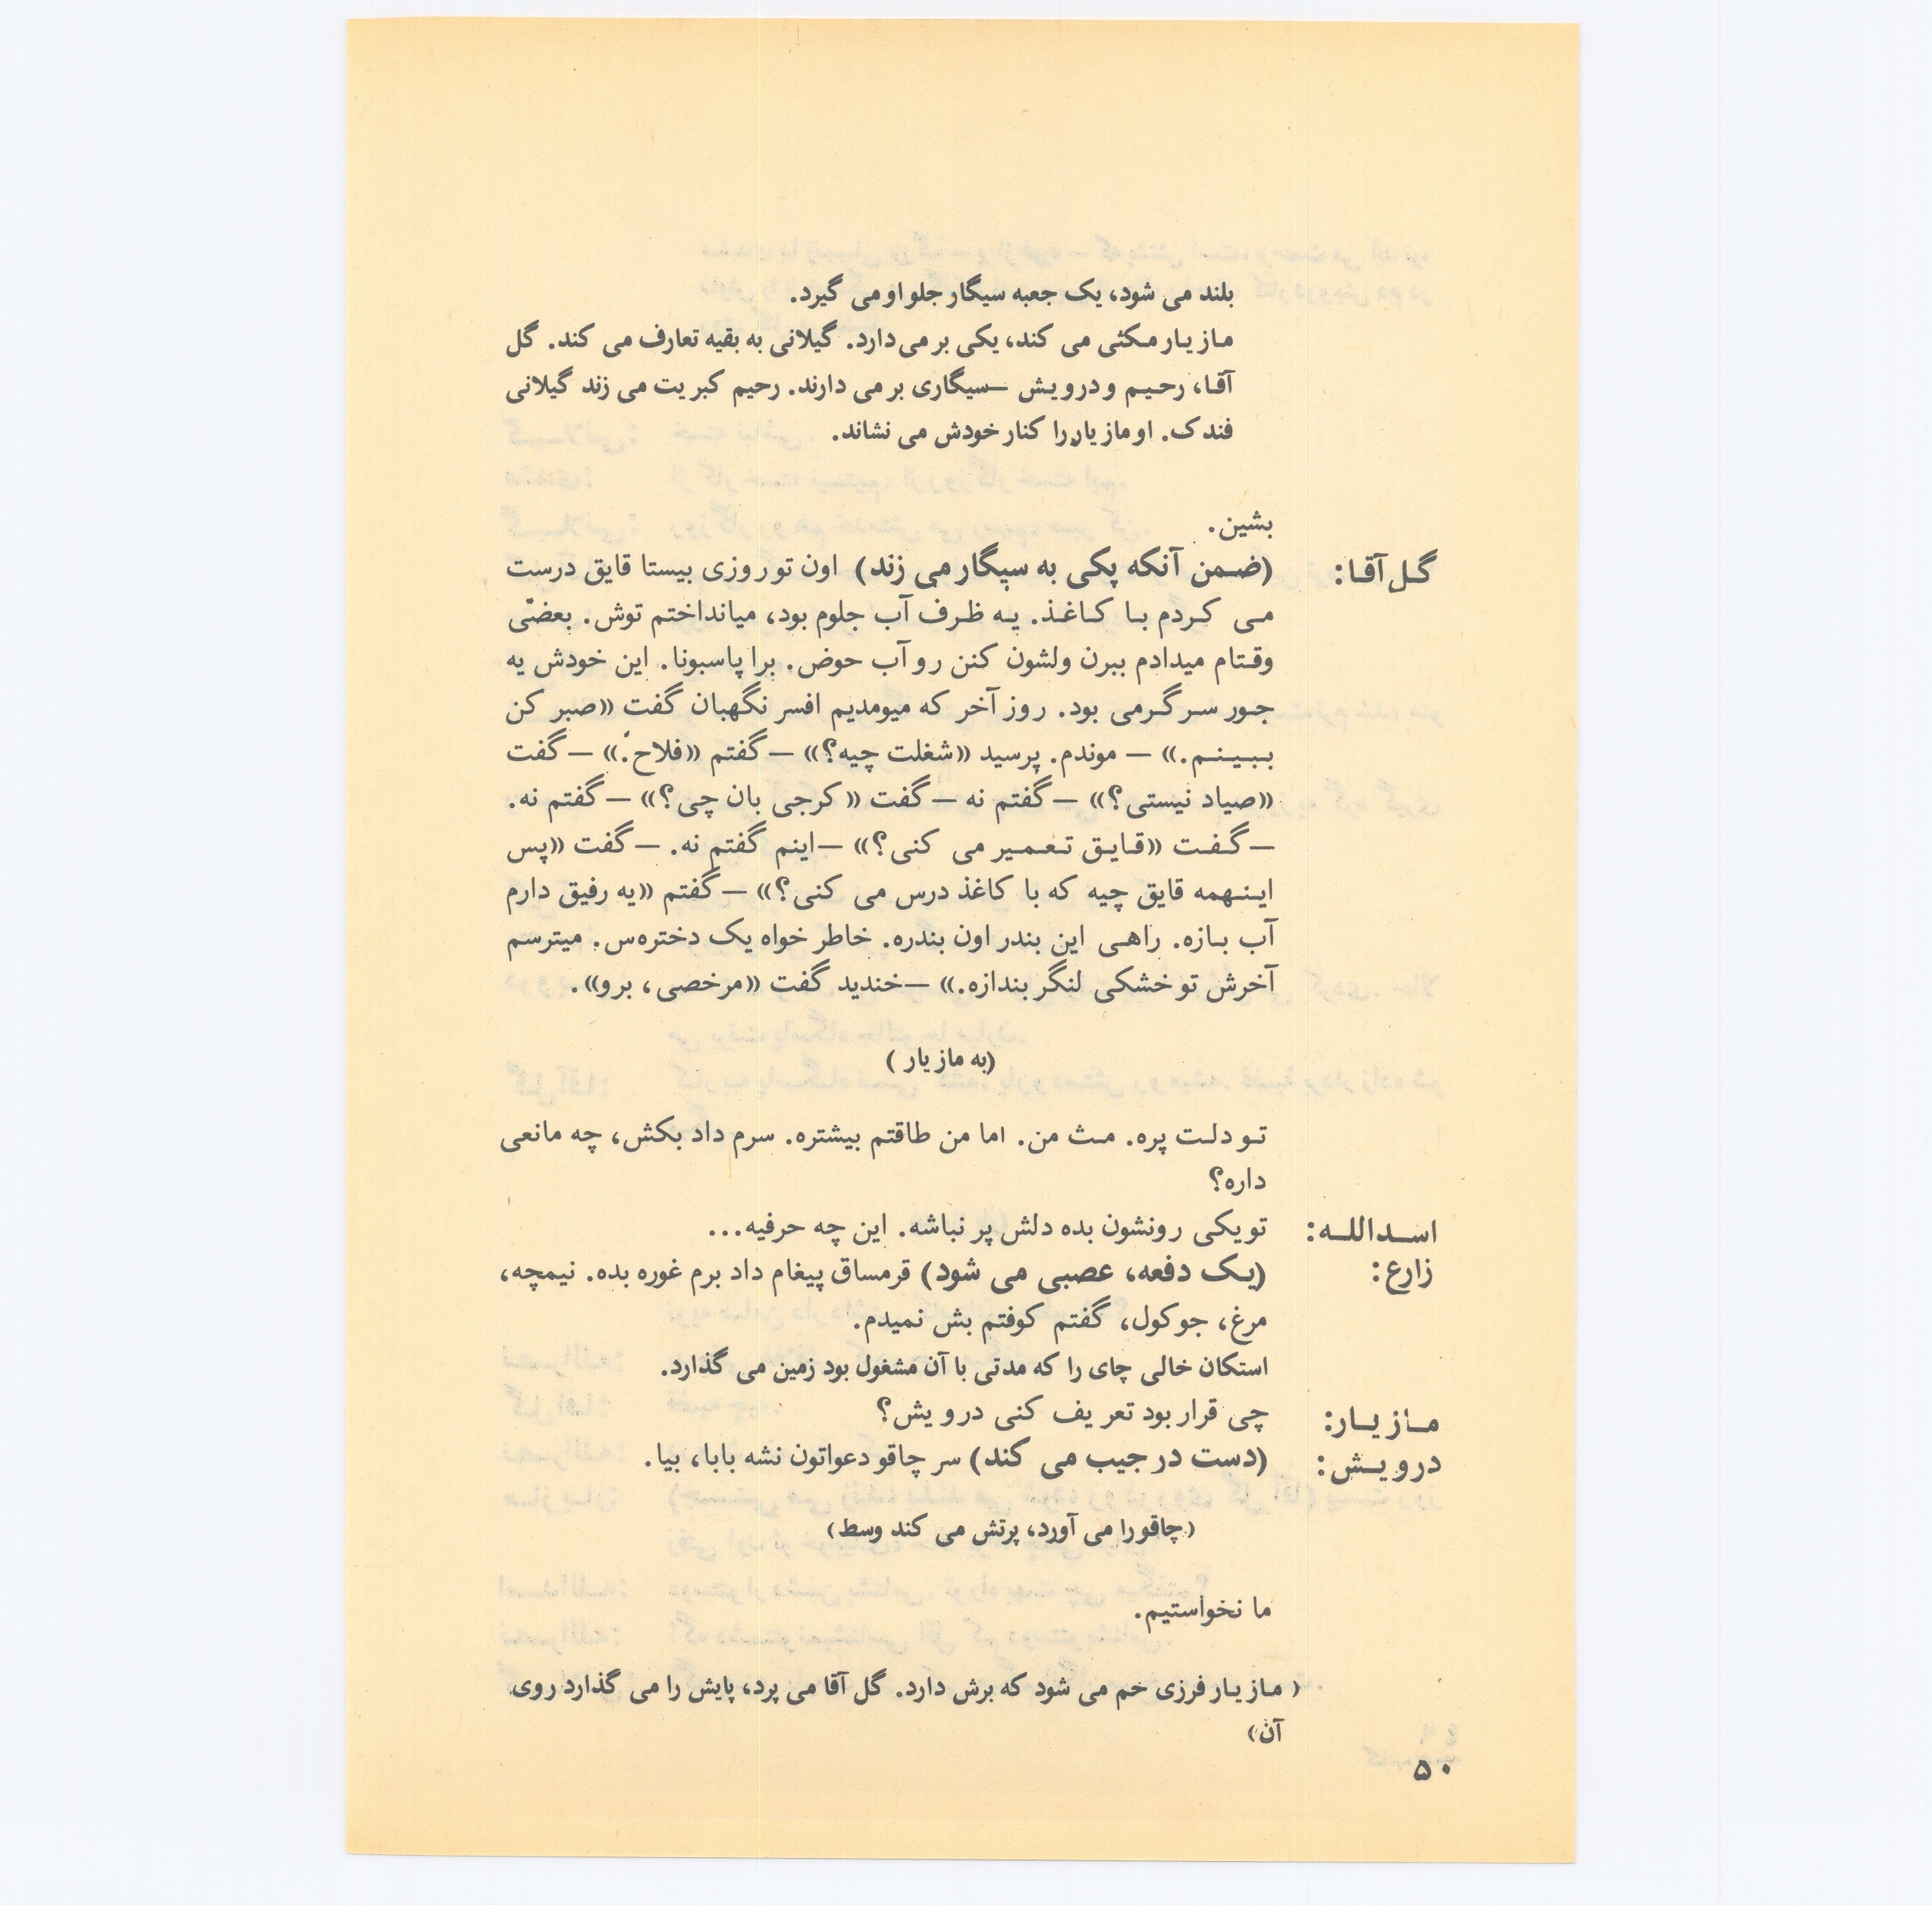 بلند می شود، یک جعبه سیگار جلو او می گیرد.
مازیار مکثی می کند، یکی برمی دارد. گیلانی به بقیه تعارف می کند. گل
آقا، رحیم و درویش —سیگاری برمی دارند. رحیم کبریت می زند گیلانی
فندک. او مازیار را کنار خودش می نشاند.
بشین.
گل آقا: (ضمن آنکه پکی به سیگار می زند) اون تو روزی بیستا قایق درست
می کردم با کاغذ. یه ظرف آب جلوم بود، میانداختم توش. بعضی
وقتام میدادم ببرن ولشون کنن رو آب حوض. برا پاسبونا. این خودش یه
جور سرگرمی بود. روز آخر که میومدیم افسر نگهبان گفت «صبر کن
ببینم.» — موندم. پرسید «شغلت چیه؟» —گفتم «فلاح.» —گفت
«صیاد نیستی؟» —گفتم نه —گفت «کرجی بان چی؟» —گفتم نه.
—گفت «قایق تعمیر می کنی؟» —اینم گفتم نه. —گفت «پس
اینهمه قایق چیه که با کاغذ درس می کنی؟» —گفتم «یه رفیق دارم
آب بازه. راهی این بندر اون بندره. خاطر خواه یک دختره‌س. میترسم
آخرش تو خشکی لنگر بندازه.» —خندید گفت «مرخصی، برو».
(به مازیار )
تو دلت پره. مث من. اما من طاقتم بیشتره. سرم داد بکش، چه مانعی
داره؟
اسدالله: تو یکی رونشون بده دلش پر نباشه. این چه حرفیه...
زارع: (یک دفعه، عصبی می شود) قرمساق پیغام داد برم غوره بده. نیمچه،
مرغ، جوکول، گفتم کوفتم بش نمیدم.
استکان خالی چای را که مدتی با آن مشغول بود زمین می گذارد.
مازیار: چی قرار بود تعریف کنی درویش؟
درویش: (دست در جیب می کند) سر چاقو دعواتون نشه بابا، بیا.
(چاقو را می آورد، پرتش می کند وسط)
ما نخواستیم.
( مازیار فرزی خم می شود که برش دارد. گل آقا می پرد، پایش را می گذارد روی
آن)
۵۰